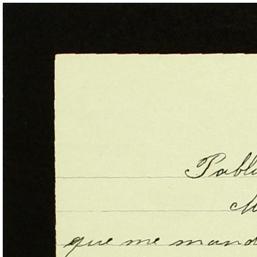 Pabl
M
que me mand